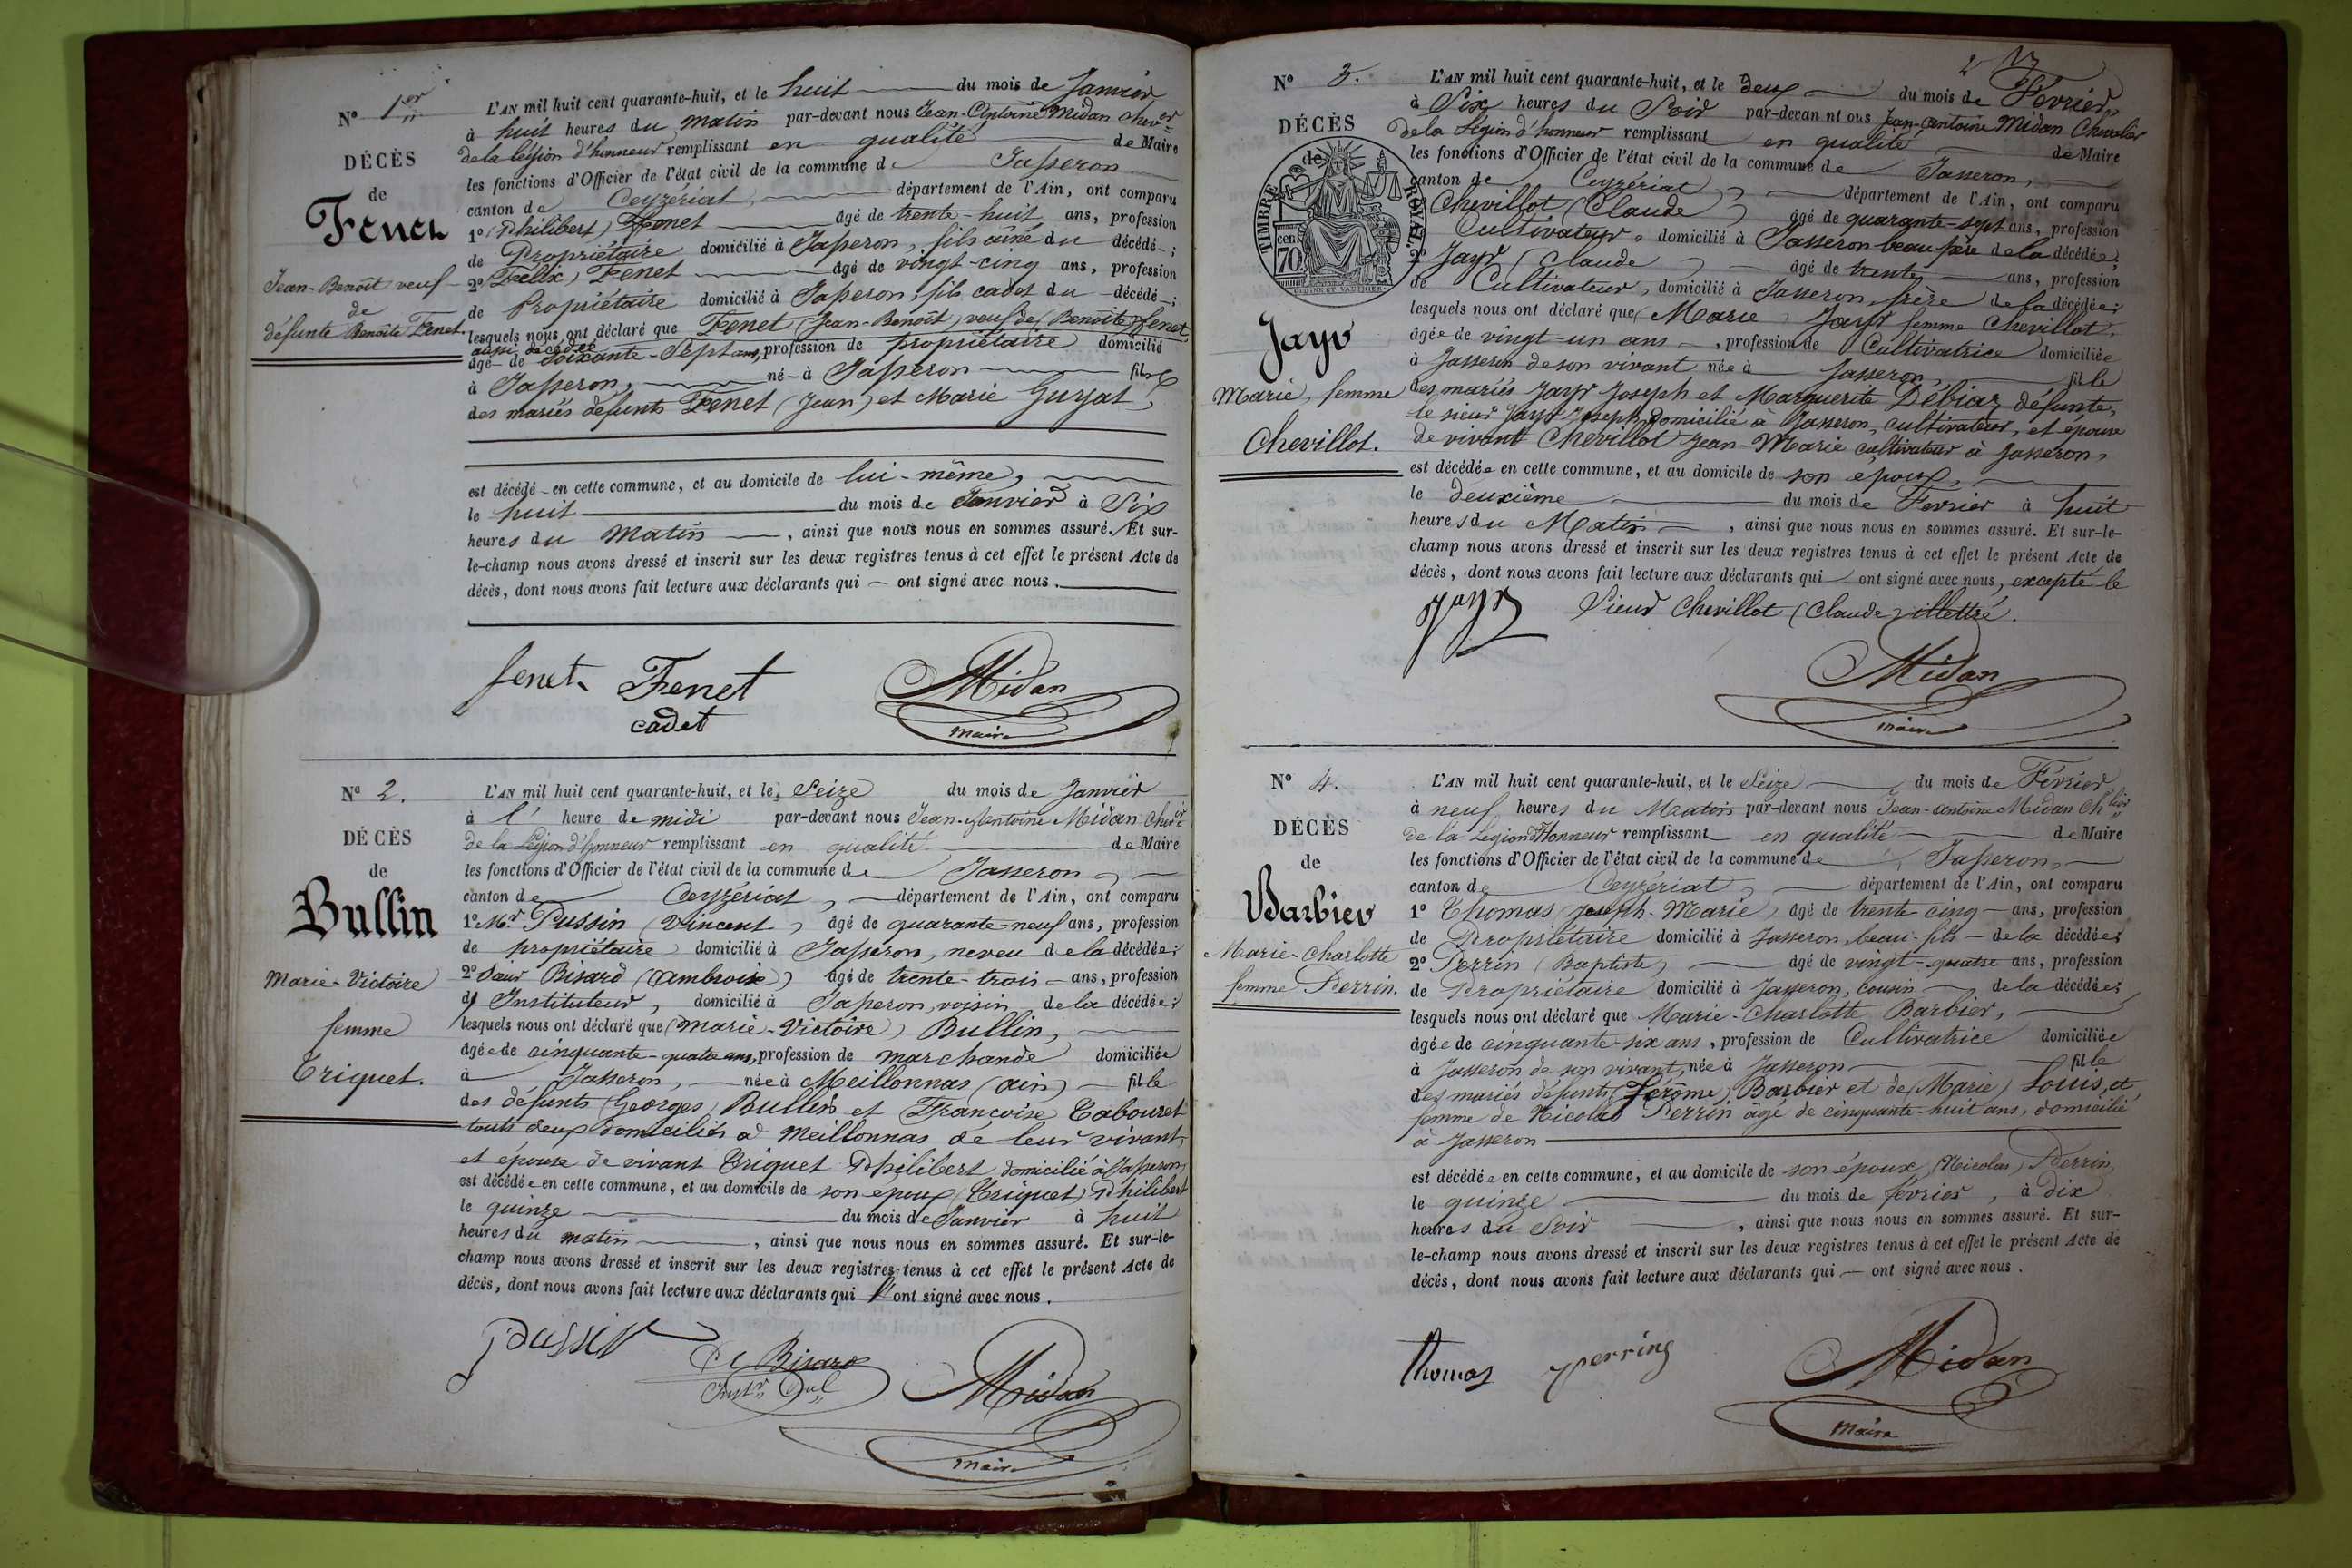 N° 1er
DÉCÈS
de
Fenet
Jean-Benoît veuf
de
défunte Benoîte Fenet.
L'AN mil huit cent quarante-huit, et le huit du mois de Janvier
à huit heures du matin par-devant nous Jean-Antoine Midan Chever
de la Légion d'honneur remplissant en qualité de Maire
les fonctions d'Officier de l'état civil de la commune de Jasseron
canton de Ceyzériat, département de l'Ain, ont comparu
1° (Philibert) Fenet âgé de trente-huit ans, profession
de Propriétaire domicilié à Jasseron, fils aîné du décédé;
2° (Félix) Fenet âgé de vingt-cinq ans, profession
de Propriétaire domicilié à Jasseron, fils cadet du décédé;
lesquels nous ont déclaré que Fenet (Jean-Benoît) veuf de (Benoîte) fenet
aussi décédée
âgé de soixante-sept ans, profession de propriétaire domicilié
à Jasseron, né à Jasseron fils
des mariés défunts Fenet (Jean) et Marie Guyat,
est décédé en cette commune, et au domicile de lui-même,
le huit du mois de Janvier à Six
heures du matin, ainsi que nous nous en sommes assuré. Et sur-
le-champ nous avons dressé et inscrit sur les deux registres tenus à cet effet le présent Acte de
décès, dont nous avons fait lecture aux déclarants qui ont signé avec nous.
fenet Fenet Midan
cadet maire
N° 2.
DÉCÈS
de
Bullin
Marie-Victoire
femme
Triquet.
L'AN mil huit cent quarante-huit, et le Seize du mois de Janvier
à l' heure de midi par-devant nous Jean-Antoine Midan Cher
de la Légion d'honneur remplissant en qualité de Maire
les fonctions d'Officier de l'état civil de la commune de Jasseron
canton de Ceyzériat, département de l'Ain, ont comparu
1° Mr. Pussin (Vincent) âgé de quarante-neuf ans, profession
de propriétaire domicilié à Jasseron, neveu de la décédée;
2° Sieur Bisard (Ambroise) âgé de trente-trois ans, profession
d'Instituteur, domicilié à Jasseron, voisin de la décédée;
lesquels nous ont déclaré que (Marie-Victoire) Bullin,
âgée de cinquante-quatre ans, profession de marchande domiciliée
à Jasseron, née à Meillonnas (ain) fille
des défunts (Georges) Bullin et Françoise Cabouret
touts deux domiciliés à Meillonnas de leur vivant,
et épouse de vivant Triquet Philibert domicilié à Jasseron,
est décédée en cette commune, et au domicile de son époux (Triquet) Philibert
le quinze du mois de Janvier à huit
heures du matin, ainsi que nous nous en sommes assuré. Et sur-le-
champ nous avons dressé et inscrit sur les deux registres tenus à cet effet le présent Acte de
décès, dont nous avons fait lecture aux déclarants qui ont signé avec nous.
Pussin Bisard Midan
maire
N° 3.
DÉCÈS
de
TIMBRE ROYAL.
70 cent
Jayr
Marie, femme
Chevillot.
L'AN mil huit cent quarante-huit, et le deux du mois de Février,
à Six heures du Soir par-devan nt ous Jean-Antoine Midan Chevalier
de la Légion d'honneur remplissant en qualité de Maire
les fonctions d'Officier de l'état civil de la commune de Jasseron,
canton de Ceyzériat, département de l'Ain, ont comparu
Chevillot (Claude) âgé de quarante-sept ans, profession
Cultivateur, domicilié à Jasseron beau père de la décédée;
2° Jayr (Claude) âgé de trente ans, profession
de Cultivateur, domicilié à Jasseron, frère de la décédée;
lesquels nous ont déclaré que (Marie) Jayr femme Chevillot,
âgée de vingt-un ans, profession de Cultivatrice domiciliée
à Jasseron de son vivant née à Jasseron, fille
des mariés Jayr Joseph et Marguerite Débiaz, défunte,
le sieur Jayr Joseph, domicilié à Jasseron, cultivateur, et épouse
de vivant Chevillot Jean-Marie cultivateur à Jasseron,
est décédée en cette commune, et au domicile de son époux,
le deuxième du mois de Fevrier à huit
heures du Matin, ainsi que nous nous en sommes assuré. Et sur-le-
champ nous avons dressé et inscrit sur les deux registres tenus à cet effet le présent Acte de
décès, dont nous avons fait lecture aux déclarants qui ont signé avec nous, excepté le
Sieur Chevillot (Claude) illettré.
Jayr
Midan
maire
N° 4.
DÉCÈS
de
Barbier
Marie-Charlotte
femme Perrin.
L'AN mil huit cent quarante-huit, et le Seize du mois de Février
à neuf heures du Matin par-devant nous Jean-antoine Midan Chlier
de la Légion d'Honneur remplissant en qualité de Maire
les fonctions d'Officier de l'état civil de la commune de Jasseron,
canton de Ceyzériat, département de l'Ain, ont comparu
1° Thomas (Joseph-Marie) âgé de trente-cinq ans, profession
de Propriétaire domicilié à Jasseron, beau-fils de la décédée;
2° Perrin (Baptiste) âgé de vingt-quatre ans, profession
de Propriétaire domicilié à Jasseron, cousin de la décédée;
lesquels nous ont déclaré que Marie-Charlotte Barbier,
âgée de cinquante-six ans, profession de Cultivatrice domiciliée
à Jasseron de son vivant, née à Jasseron fille
des mariés défunts (Jérôme) Barbier et de (Marie) Louis, et
femme de Nicolas Perrin âgé de cinquante-huit ans, domicilié
à Jasseron
est décédée en cette commune, et au domicile de son époux (Nicolas) Perrin,
le quinze du mois de février, à dix
heures du Soir, ainsi que nous nous en sommes assuré. Et sur-
le-champ nous avons dressé et inscrit sur les deux registres tenus à cet effet le présent Acte de
décès, dont nous avons fait lecture aux déclarants qui ont signé avec nous.
Thomas perring Midan
maire